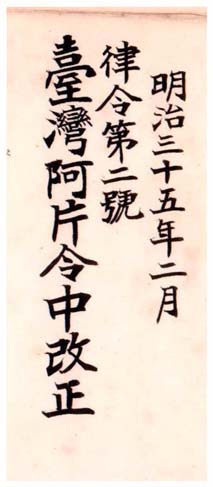 明治三十五年二月
律令第二號
臺灣阿片令中改正